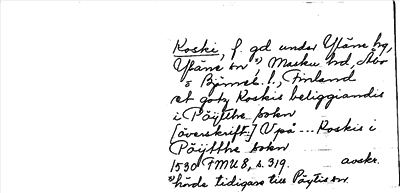 Koski, f. gd under Yläne by,
Yläne sn x), Masku hd, Åbo
o Björneb. l., Finland
et gotz Koskis beliggiandis
i Pöijtthe sokn
[överskrift:] Vpå ... Koskis i
Pöijtthe sokn
1530 FMU 8, s. 319. avskr.
x) hörde tidigare till Pöytis sn.